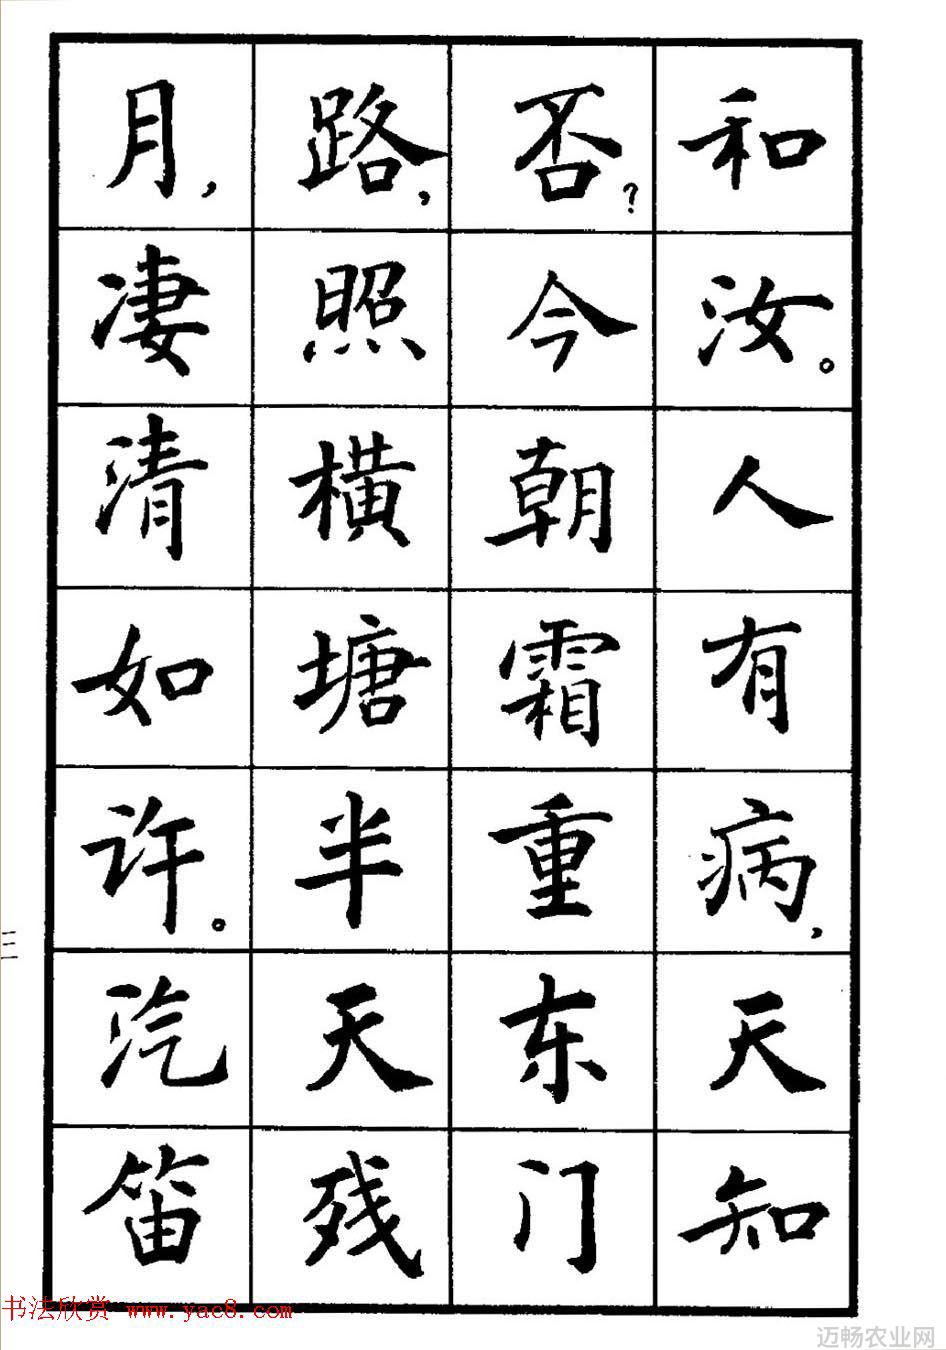 和汝。人有病，天知
否？今朝霜重东门
路，照横塘半天残
月，凄清如许。汽笛
二二
书法欣赏 www.yac8.com
迈畅农业网